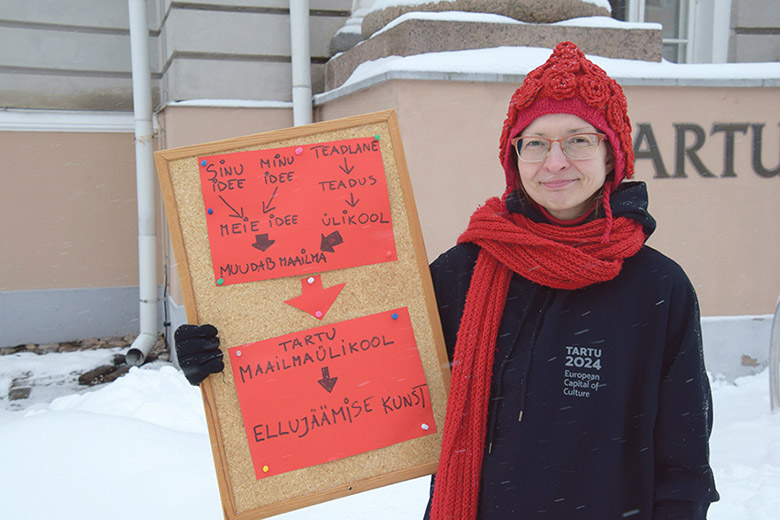 SINU IDEE
MINU IDEE
MEIE IDEE
TEADLANE
TEADUS
ÜLIKOOL
MUUDAB MAAILMA
TARTU
MAAILMAÜLIKOOL
ELLUJÄÄMISE KUNST
TARTU
TARTU
2024
European
Capital of
Culture